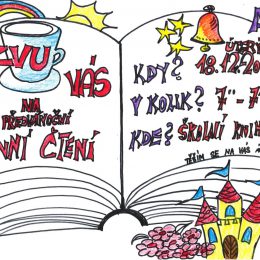 ZVU
VÁS
NA
PŘEDVÁNOČNÍ
NNÍ ČTENÍ
ÚTERÝ
KDY? 18.12.20
V KOLIK? 7⁰⁰-7
KDE? ŠKOLNÍ KNIH
TĚŠÍM SE NA VÁS